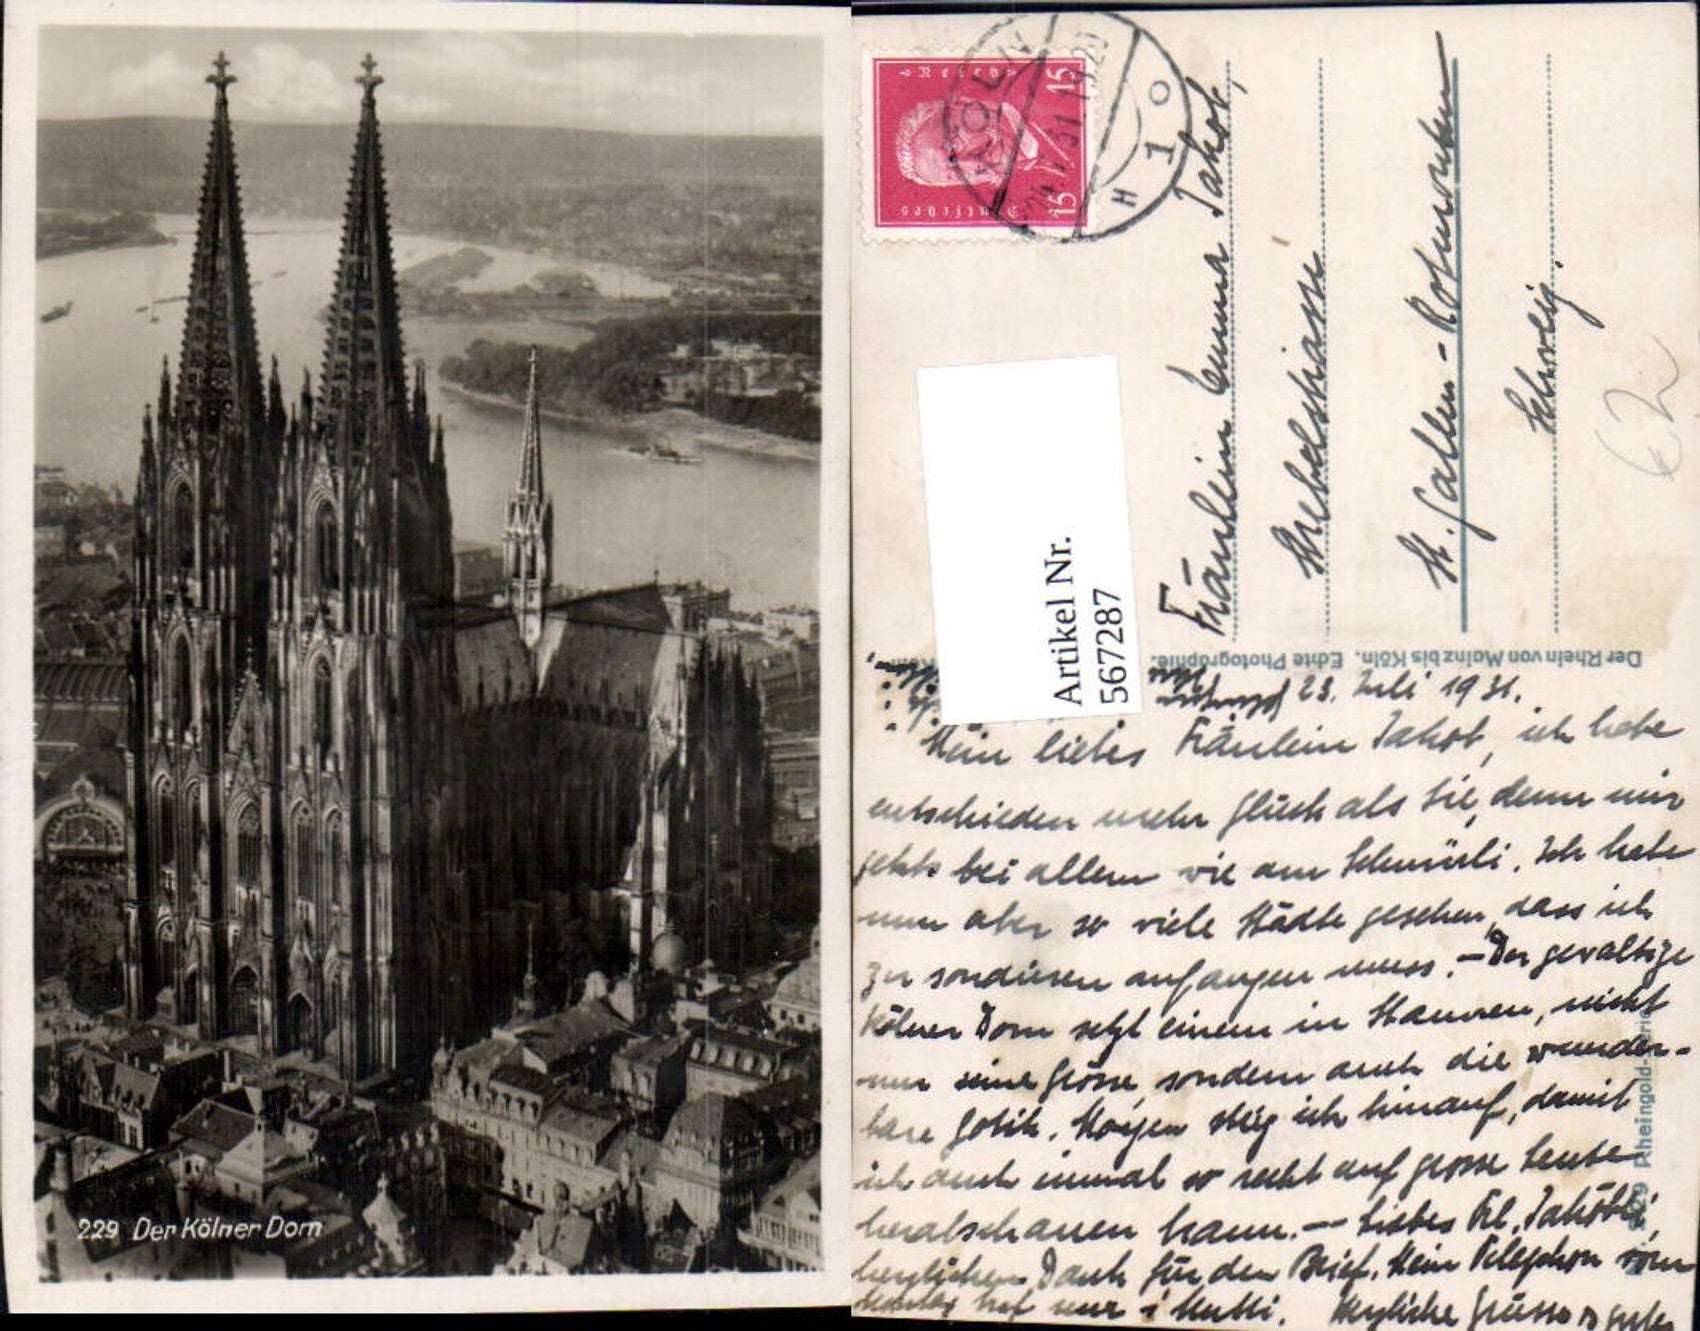 229 Der Kölner Dom
Deutsches
15 15
KÖLN
H
1
Artikel Nr.
567287
Fräulein Emma Jakob,
Hebelstrasse
St. Gallen - Rotmonten
Schweiz.
62
Der Rhein von Mainz bis Köln. Echte Photographie.
23. Juli 1931.
Mein liebes Fräulein Jakob, ich habe
entschieden mehr Glück als Sie, denn mir
jetzt bei allem wie am Schnürli. Ich habe
nun aber so viele Städte gesehen, dass ich
zu sondieren anfangen muss. – Der gewaltige
Kölner Dom setzt einem in Staunen, nicht
nur seine Grösse, sondern auch die wunder-
bare Gotik. Morgen steig ich hinauf, damit
ich auch einmal so recht auf grosse Leute
herabschauen kann. – Liebes Frl. Jaköbli,
herzlichen Dank für den Brief. Mein Telephon vom
Montag traf nur s' Mutti. Herzliche Grüsse